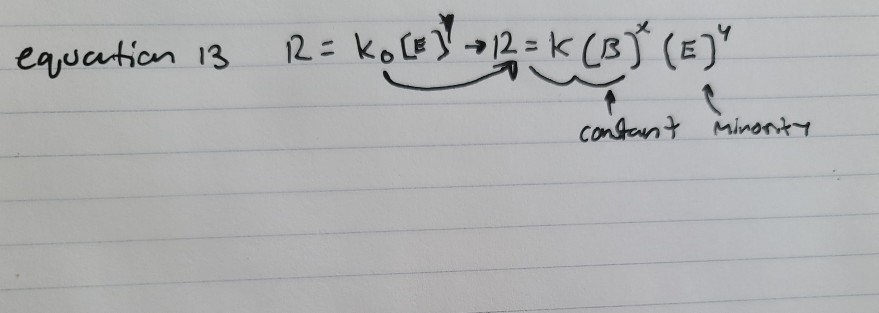 equation 13 R = K₀[E]^y → R = K (B)^x (E)^y
constant minority